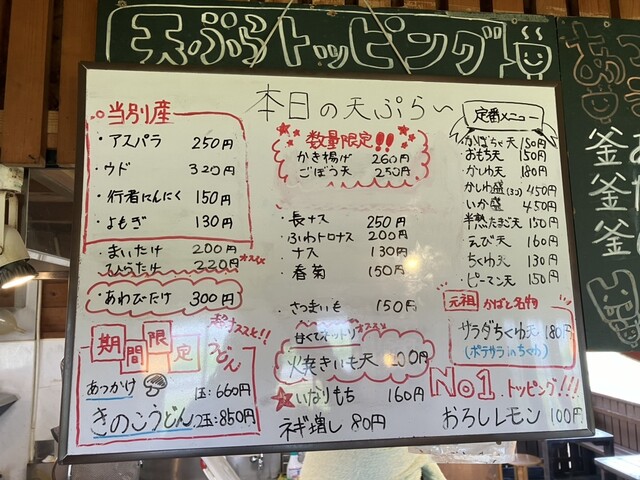 天ぷらトッピング
本日の天ぷら〜
当別産
・アスパラ 250円
・ウド 320円
・行者にんにく 150円
・よもぎ 130円
・まいたけ 200円
ひらたけ 220円 オススメ
・あわびたけ 300円
超オススメ!!
期間限定
うどん
あつかけ 1玉:660円
きのこうどん 2玉:850円
数量限定!!
かき揚げ 260円
ごぼう天 250円
・長ナス 250円
・ふわトロナス 200円
・ナス 130円
・春菊 150円
・さつまいも 150円
甘くてネットリ オススメ
火焼きいも天 00円
いなりもち 160円
ネギ増し 80円
定番メニュー
かぼちゃ天 150円
おもち天 150円
かしわ天 180円
かしわ盛(3コ) 450円
いか盛 450円
半熟たまご天 150円
えび天 160円
ちくわ天 130円
ピーマン天 150円
元祖 かばと名物
サラダちくわ天 180円
(ポテサラinちくわ)
No1.トッピング!!!
おろしレモン 100円
釜
釜
釜